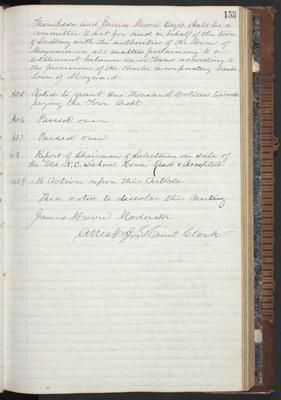 153
Thompson and James Moore Esqrs, shall be a
committee to act for and in behalf of the town
of Sudbury with the authorities of the Town of
Maynard in all matters pertaining to a
settlement between said Towns according to
the provisions of the charter incorporating said
Town of Maynard
Art 5 Voted to grant One Thousand Dollars towards
paying the Town Debt
Art 6 Passed over
Art 7 Passed over
" 8 Report of Chairman of Selectmen on sale of
the Old N. C. School House Read & Accepted
Art 9 No Action upon this Article
Then voted to dissolve this Meeting
James Moore Moderator
Attest J. S. Hunt Clerk